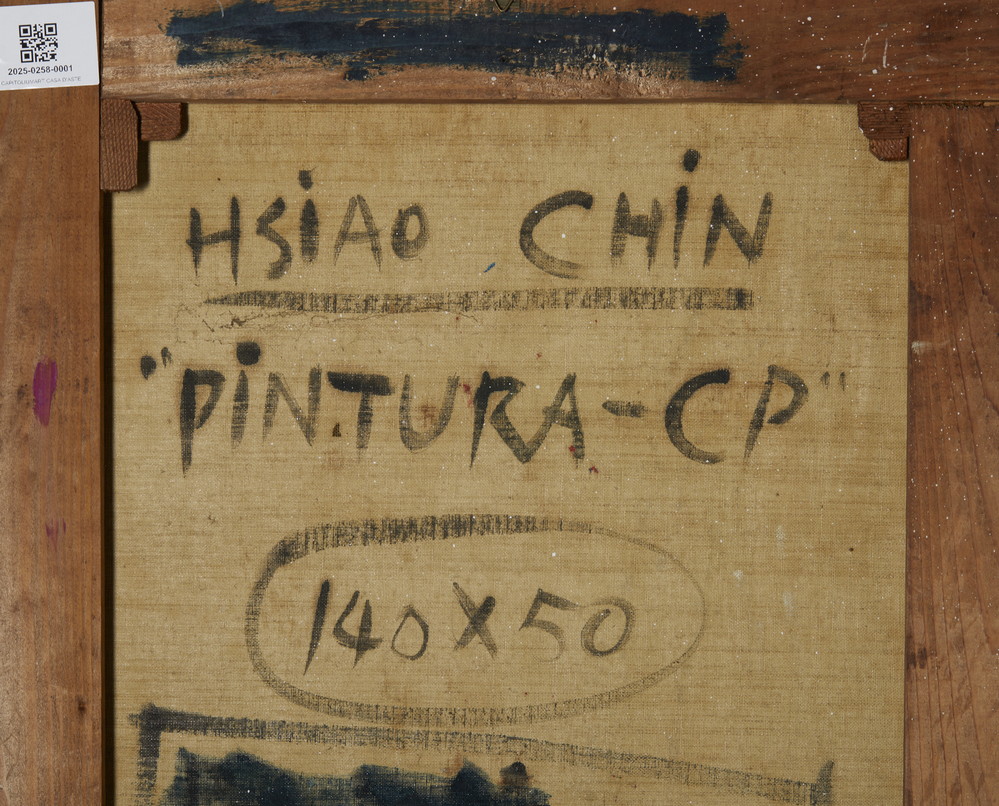 2025-0258-0001
CAPITOLIUM ART CASA D'ASTE
HSiAO CHiN
"PiNTURA-CP"
140X50